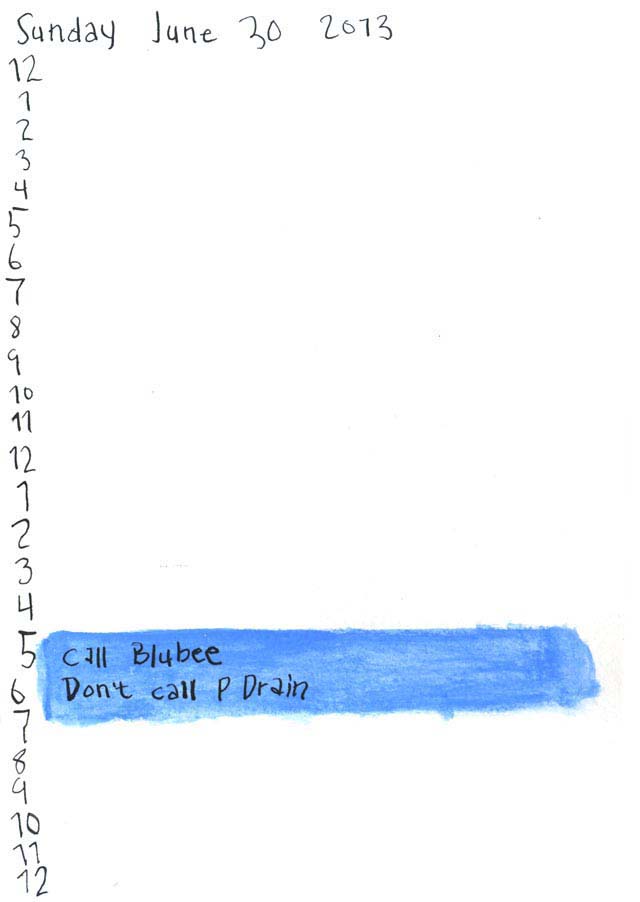 Sunday June 30 2013
12
1
2
3
4
5
6
7
8
9
10
11
12
1
2
3
4
5 Call Blubee
6 Don't call P Drain
7
8
9
10
11
12